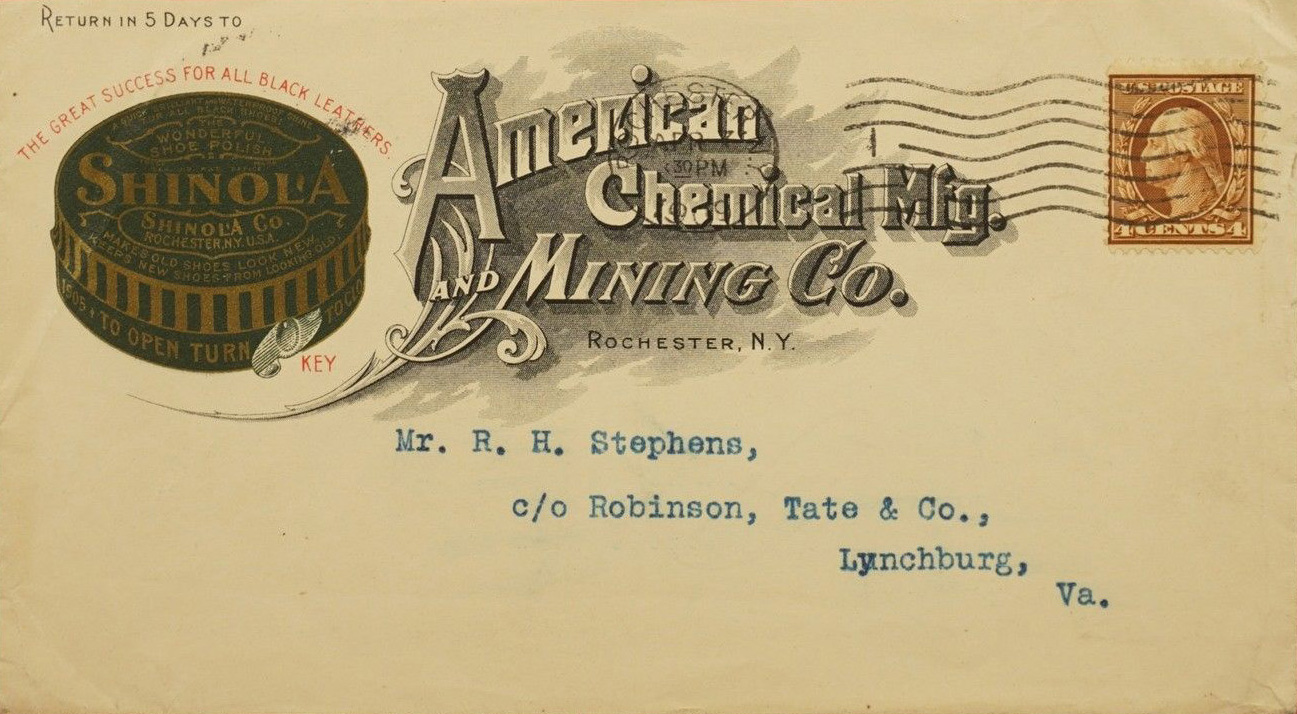 RETURN IN 5 DAYS TO
THE GREAT SUCCESS FOR ALL BLACK LEATHERS.
THE
WONDERFUL
SHOE POLISH
SHINOLA
SHINOLA CO.
ROCHESTER, N.Y. U.S.A.
MAKES OLD SHOES LOOK NEW
KEEPS NEW SHOES FROM LOOKING OLD
TO OPEN TURN
KEY
American
Chemical Mfg.
AND MINING CO.
ROCHESTER, N.Y.
30 PM
U.S. POSTAGE
4 CENTS 4
Mr. R. H. Stephens,
c/o Robinson, Tate & Co.,
Lynchburg,
Va.